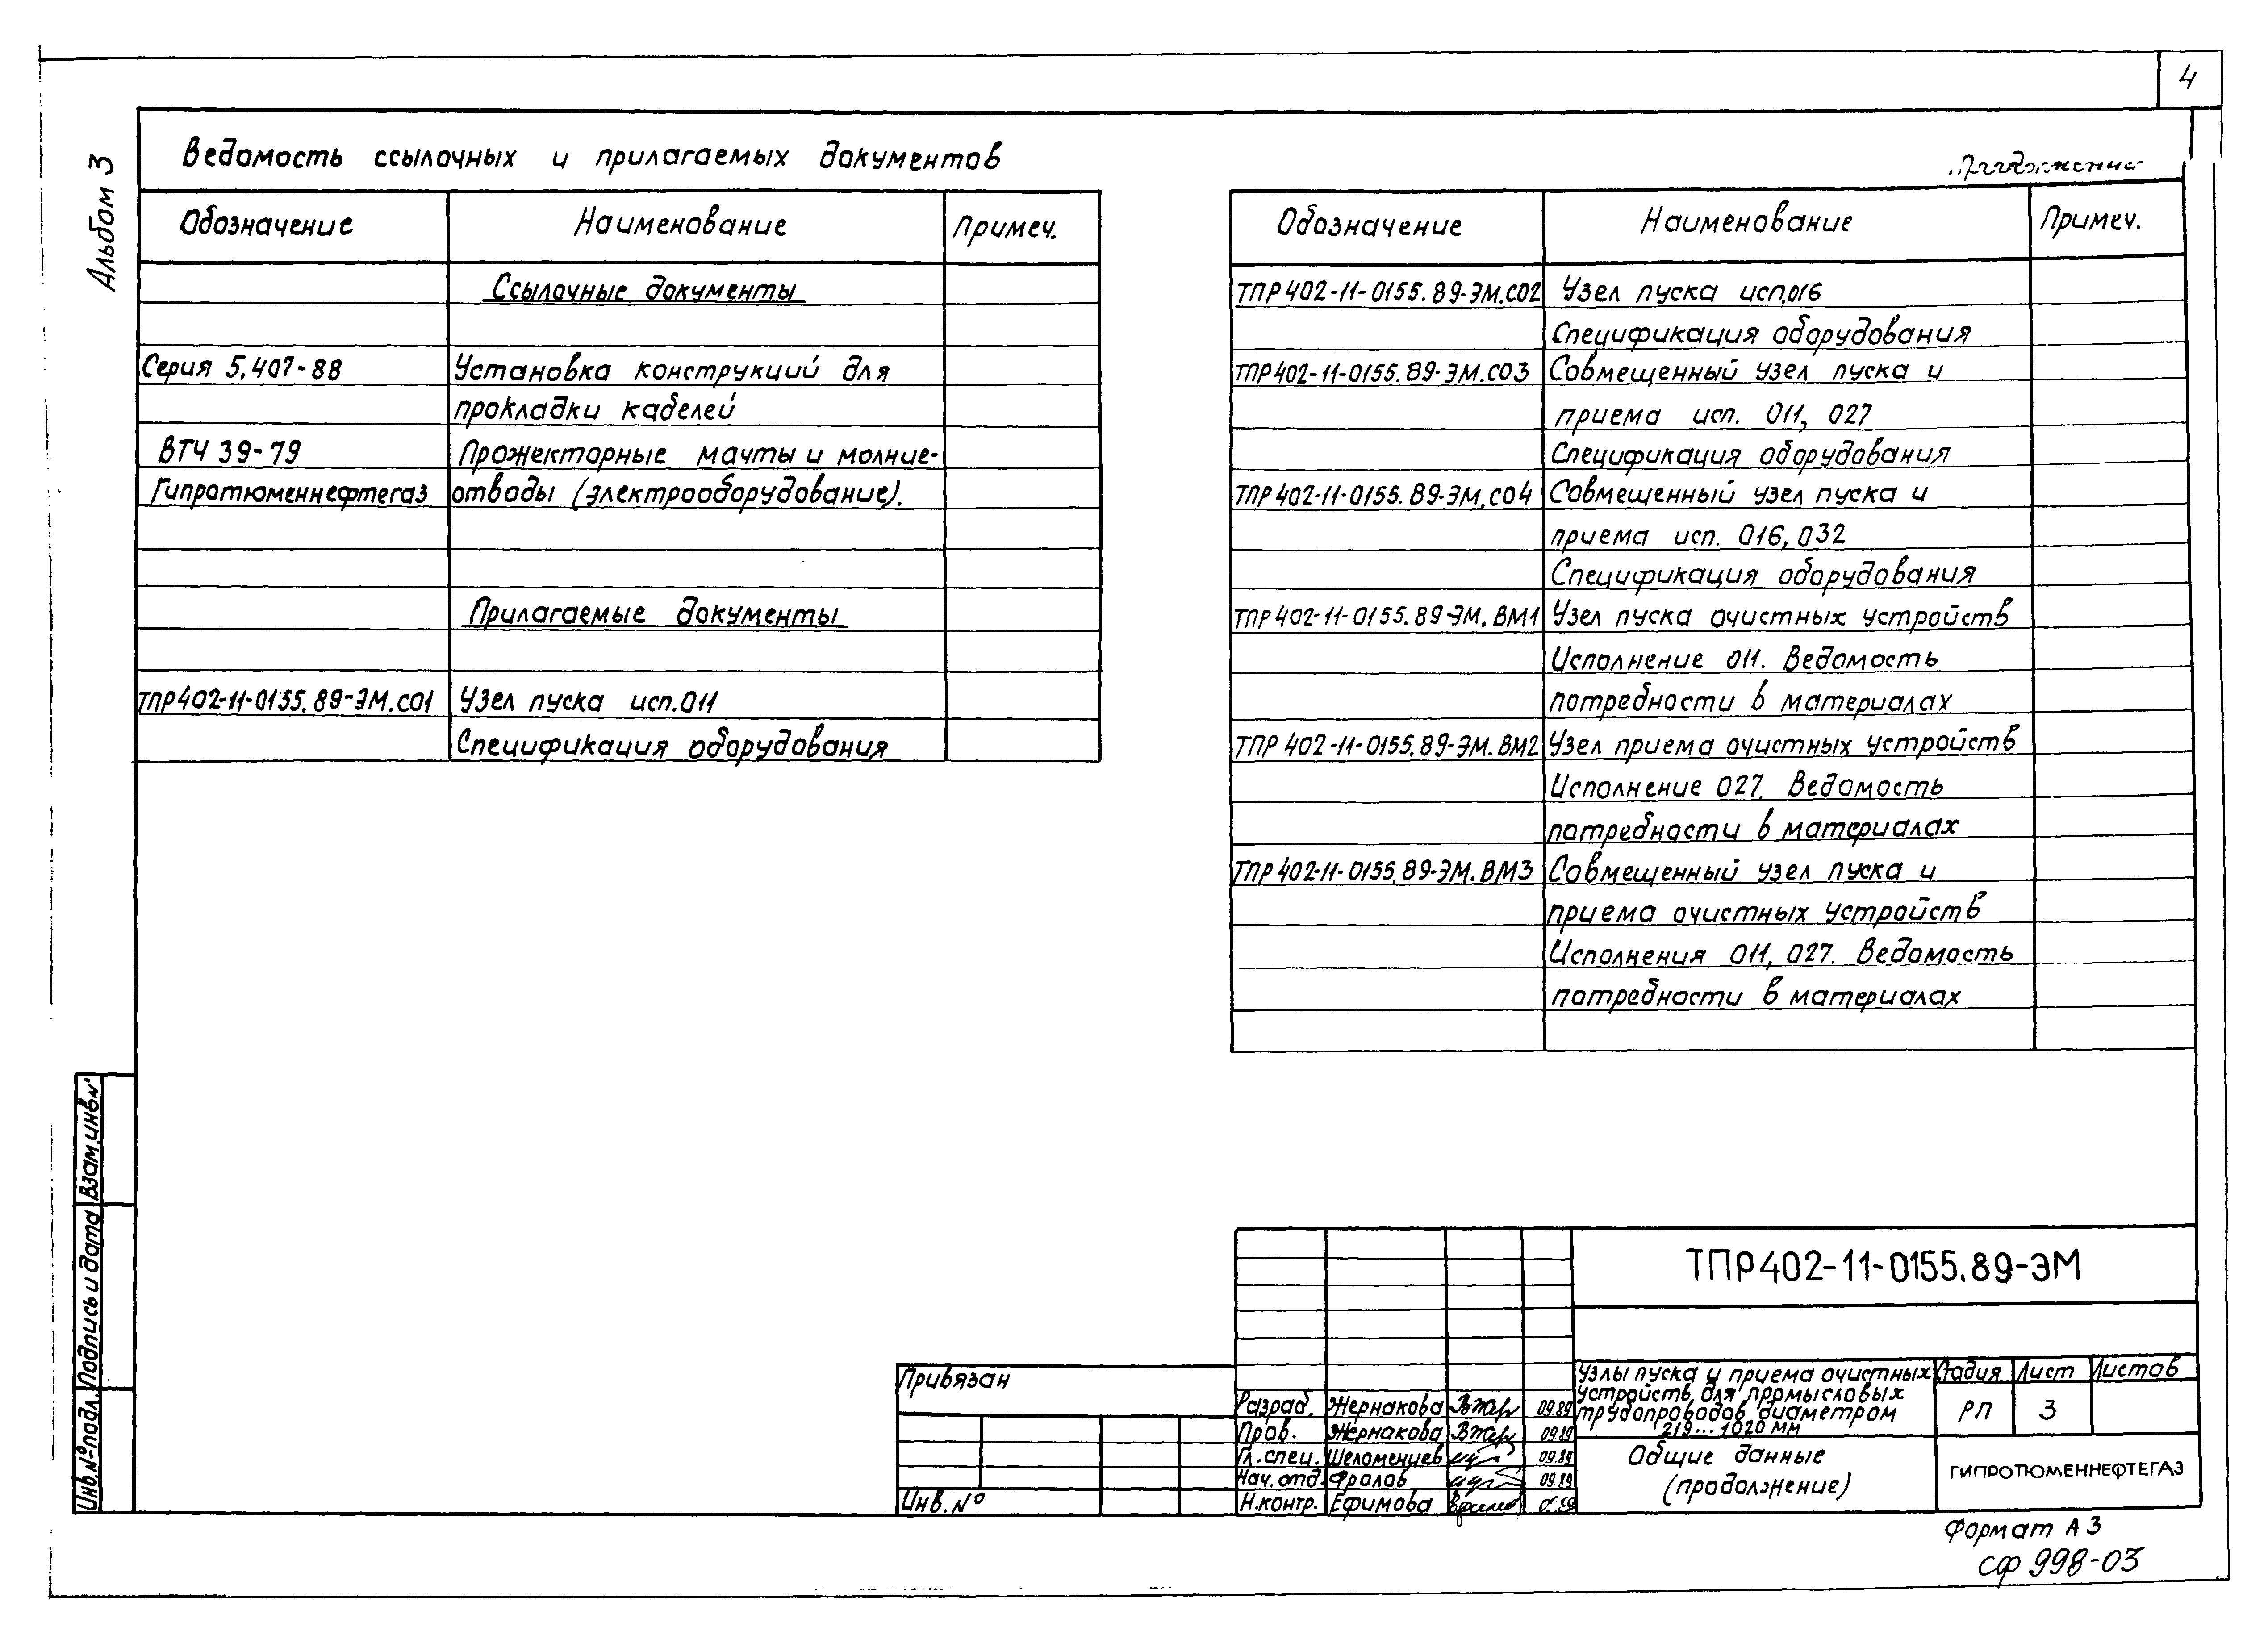 4
Альбом 3
Ведомость ссылочных и прилагаемых документов
Обозначение Наименование Примеч.
Ссылочные документы
Серия 5.407-88 Установка конструкций для
прокладки кабелей
ВТЧ 39-79 Прожекторные мачты и молние-
Гипротюменнефтегаз отводы (электрооборудование).
Прилагаемые документы
ТПР402-11-0155.89-ЭМ.СО1 Узел пуска исп.011
Спецификация оборудования
Продолжение
Обозначение Наименование Примеч.
ТПР402-11-0155.89-ЭМ.СО2 Узел пуска исп.016
Спецификация оборудования
ТПР402-11-0155.89-ЭМ.СО3 Совмещенный узел пуска и
приема исп. 011, 027
Спецификация оборудования
ТПР402-11-0155.89-ЭМ.СО4 Совмещенный узел пуска и
приема исп. 016, 032
Спецификация оборудования
ТПР402-11-0155.89-ЭМ.ВМ1 Узел пуска очистных устройств
Исполнение 011. Ведомость
потребности в материалах
ТПР402-11-0155.89-ЭМ.ВМ2 Узел приема очистных устройств
Исполнение 027. Ведомость
потребности в материалах
ТПР402-11-0155.89-ЭМ.ВМ3 Совмещенный узел пуска и
приема очистных устройств
Исполнения 011, 027. Ведомость
потребности в материалах
Взам.инв№
Подпись и дата
Инв.№подл.
Привязан
Инв.№
ТПР402-11-0155.89-ЭМ
Разраб. Жернакова 09.89
Пров. Жернакова 09.89
Гл.спец. Шеломенцев 09.89
Нач.отд. Фролов 09.89
Н.контр. Ефимова
Узлы пуска и приема очистных
устройств для промысловых
трубопроводов диаметром
219...1020 мм
Стадия Лист Листов
РП 3
Общие данные
(продолжение)
ГИПРОТЮМЕННЕФТЕГАЗ
Формат А3
сф 998-03